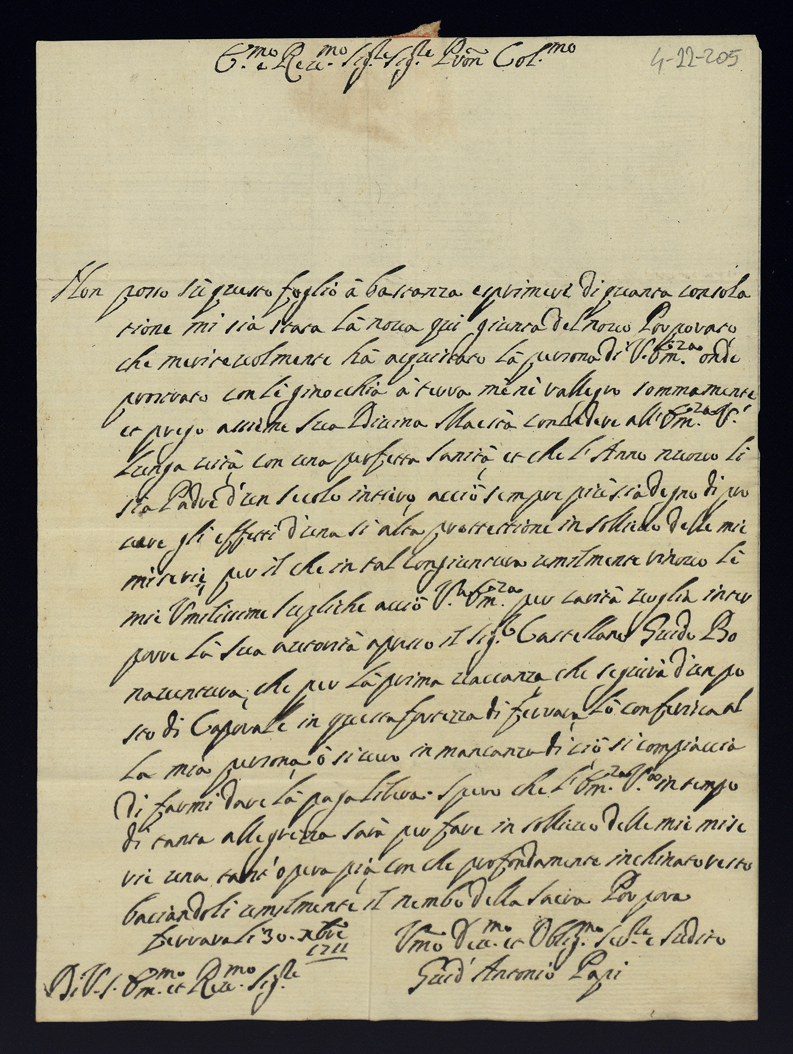 E.mo e Reu.mo Sig.re Sig.re Pron Col.mo
4-22-205
Non posso sù questo foglio à bastanza esprimere di quanta consola
tione mi sia stata la noua qui giunta del nouo Porporato
che meriteuolmente hà acquistato la persona di V. Em.za onde
prostrato con le ginocchia à terra me ne rallegro sommamente
et prego assieme Sua Diuina Maestà concedere all' Em.za V.
lunga uita con una perfetta sanità, et che l'Anno nuouo li
sia Padre d'un secolo intiero acciò sempre più sia degno di pro
uare gli effetti d'una si alta protettione in sollieuo delle mie
miserie, per il che in tal congiuntura umilmente rinouo le
mie Umilissime suppliche acciò V.a Em.za per carità uoglia inter
porre la sua autorità apresso il Sig.r Castellano Guido Bo
nauentura, che per la prima uaccanza che seguirà d'un po
sto di Caporale in questa fortezza di Ferrara lo conferisca al
la mia persona, ò si uero in mancanza di ciò si compiaccia
di farmi dare la paga libera. Spero che l' Em.za V.a in tempo
di tanta allegrezza sarà per fare in sollieuo delle mie mise
rie una tant'opera pia, con che profondamente inchinato resto
baciandoli umilmente il nembo della Sacra Porpora
Ferrara li 30. Xbre 1711
Di V. S. Em.mo et Reu.mo Sig.re
Umo Deu.mo et Oblig.mo Seru.re e Sudito
Guid' Antonio Papi